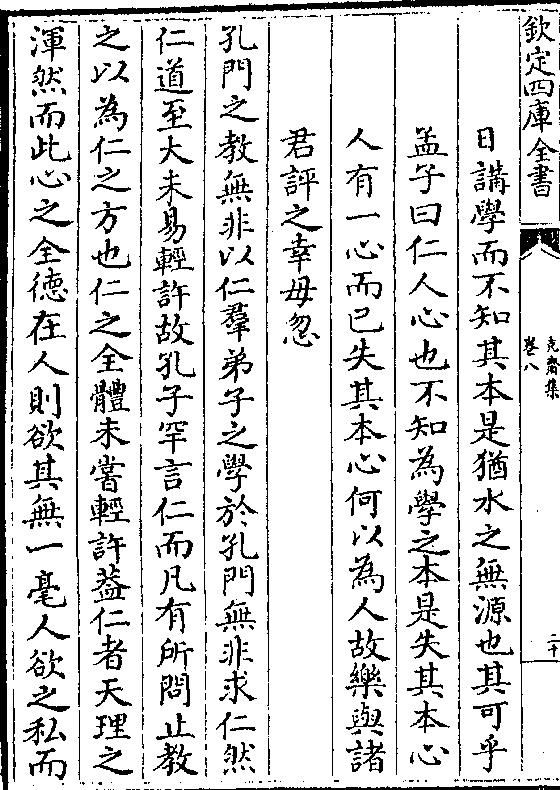 欽定四庫全書
克齋集
卷八
二十
日講學而不知其本是猶水之無源也其可乎
孟子曰仁人心也不知為學之本是失其本心
人有一心而已失其本心何以為人故樂與諸
君評之幸毋忽
孔門之教無非以仁羣弟子之學於孔門無非求仁然
仁道至大未易輕許故孔子罕言仁而凡有所問止教
之以為仁之方也仁之全體未嘗輕許葢仁者天理之
渾然而此心之全德在人則欲其無一毫人欲之私而